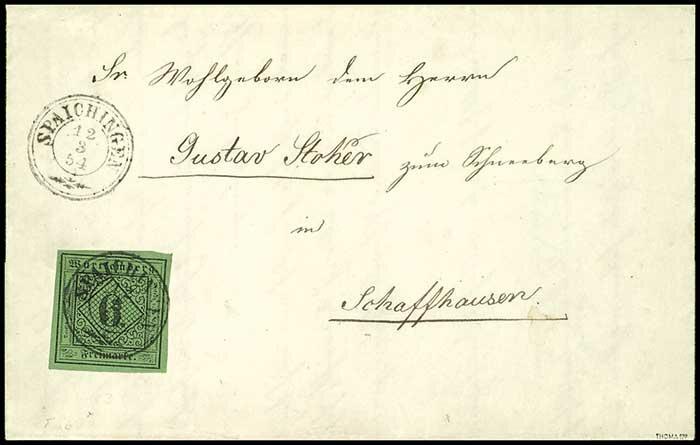 Sr. Wohlgeborn dem Herrn
SPAICHINGEN
12
3
54
Gustav Stoker zum Schneeberg
in
Schaffhausen.
Württemberg
6
Freimarke.